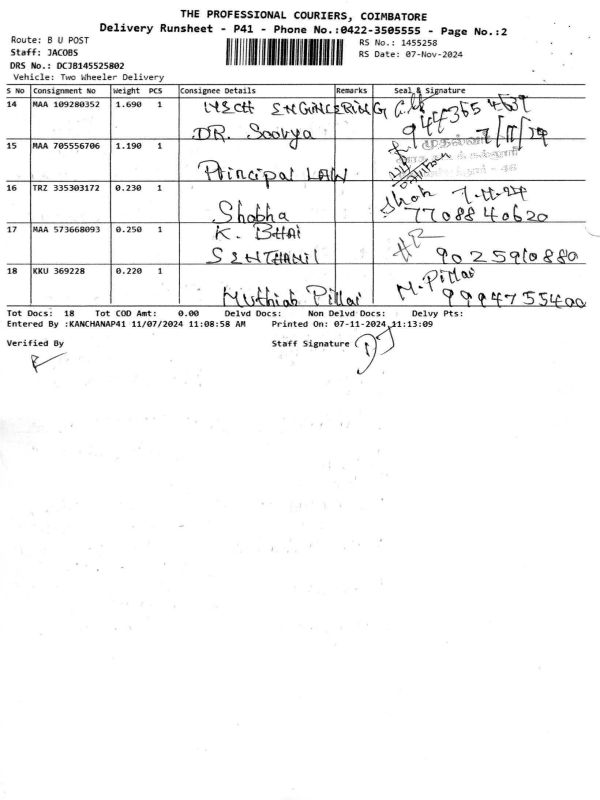 THE PROFESSIONAL COURIERS, COIMBATORE
Delivery Runsheet - P41 - Phone No.:0422-3505555 - Page No.:2
Route: B U POST
RS No.: 1455258
Staff: JACOBS
RS Date: 07-Nov-2024
DRS No.: DCJB145525802
Vehicle: Two Wheeler Delivery
S No Consignment No Weight PCS Consignee Details Remarks Seal & Signature
14 MAA 109280352 1.690 1 MECH ENGINEERING
DR. Soorya 7/11/24
15 MAA 705556706 1.190 1 முதல்வர்
Principal LAW
16 TRZ 335303172 0.230 1 7.11.24
Shobha 7708840620
17 MAA 573668093 0.250 1 K. BHAI
SENTHAMIL 9025910880
18 KKU 369228 0.220 1 M. Pillai
Muthiah Pillai 9994755400
Tot Docs: 18 Tot COD Amt: 0.00 Delvd Docs: Non Delvd Docs: Delvy Pts:
Entered By :KANCHANAP41 11/07/2024 11:08:58 AM Printed On: 07-11-2024 11:13:09
Verified By Staff Signature